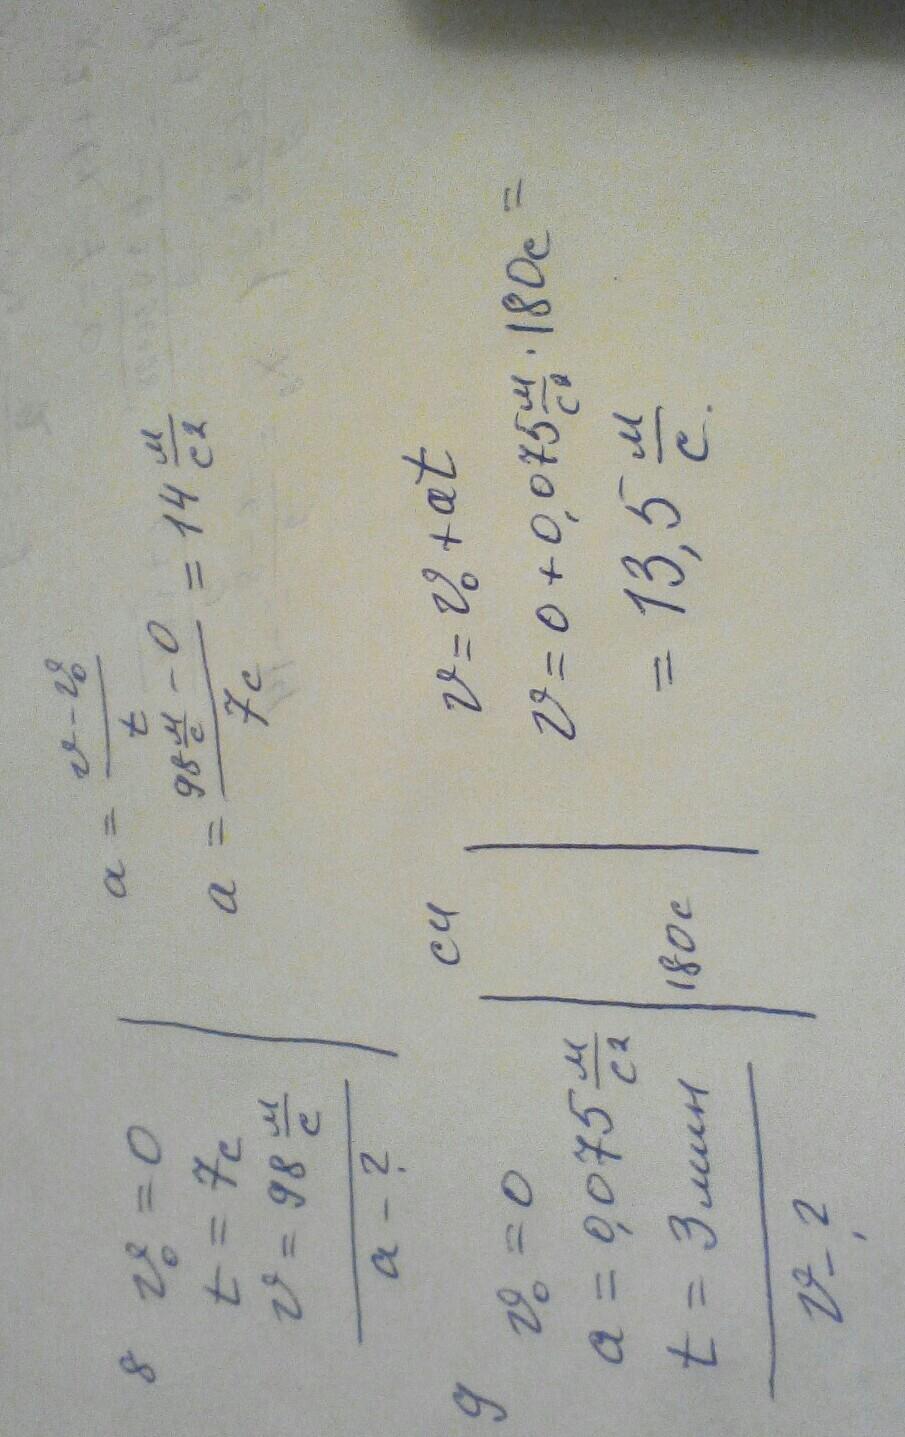 8
v₀ = 0
t = 7с
v = 98 м/с
a - ?
a = (v - v₀)/t
a = (98 м/с - 0)/7с = 14 м/с²
9
v₀ = 0
a = 0,075 м/с²
t = 3 мин
v - ?
СИ
180с
v = v₀ + at
v = 0 + 0,075 м/с² · 180с =
= 13,5 м/с.